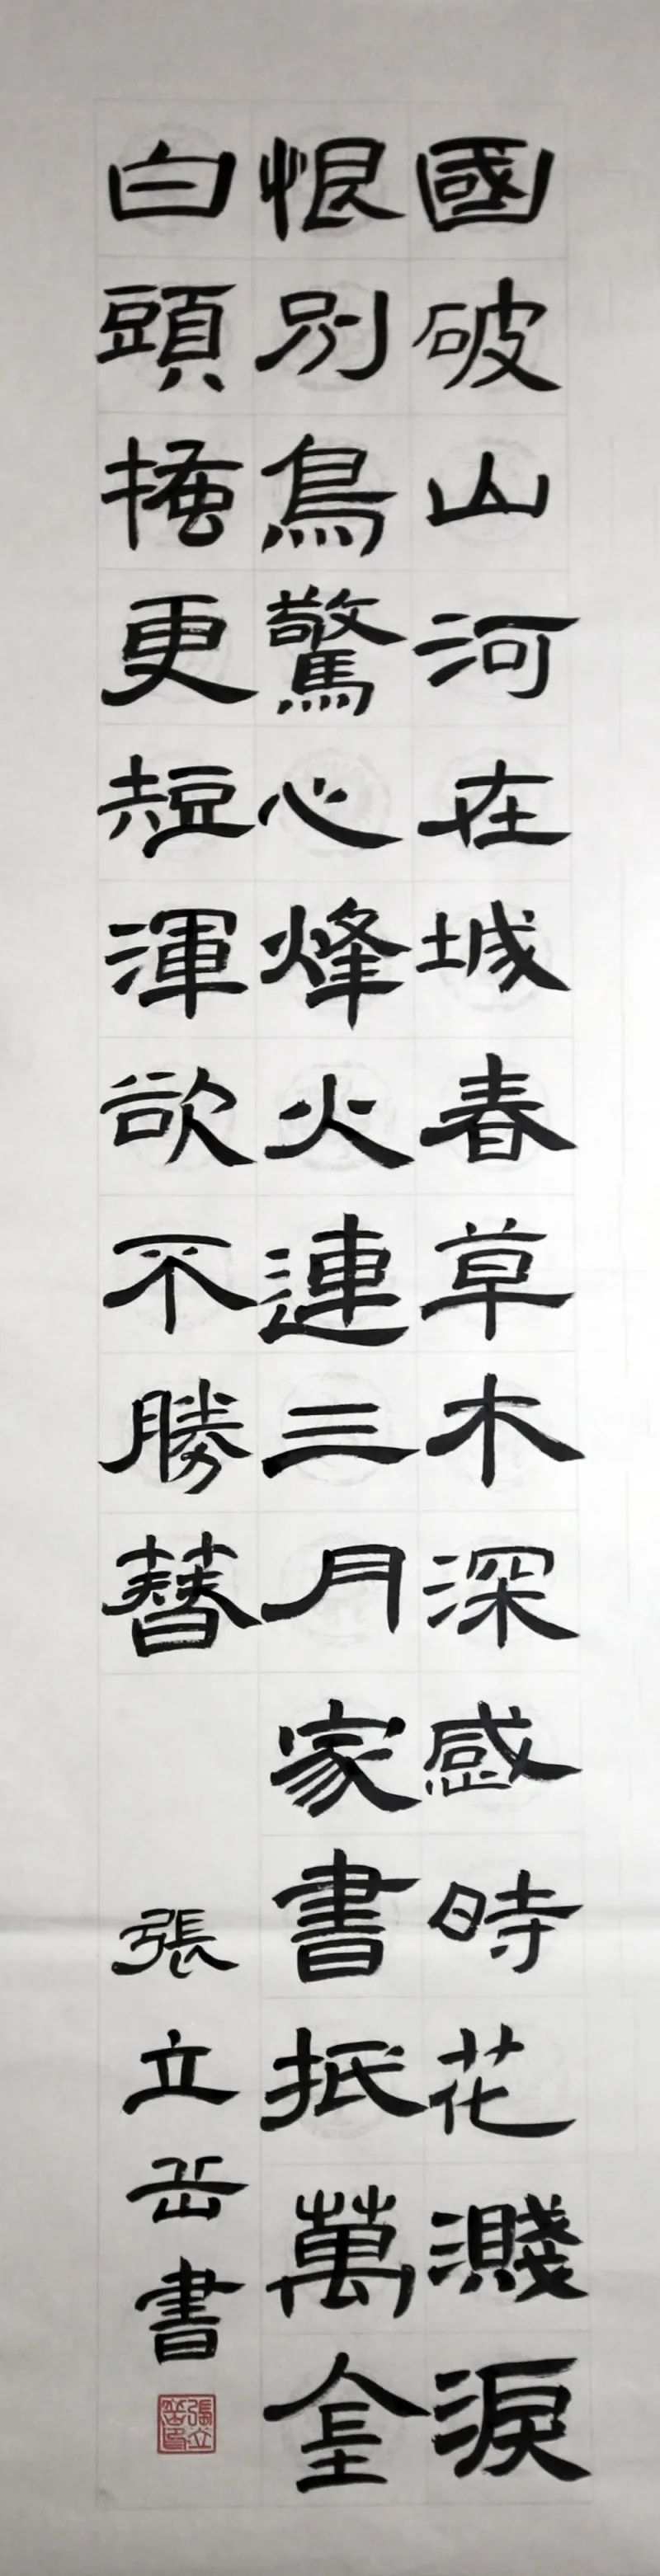 國破山河在城春草木深感時花濺淚
恨別鳥驚心烽火連三月家書抵萬金
白頭搔更短渾欲不勝簪
張立岳書